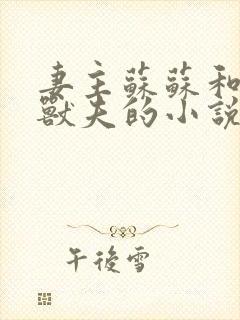 妻主蘇蘇和
獸夫的小說
午後雪